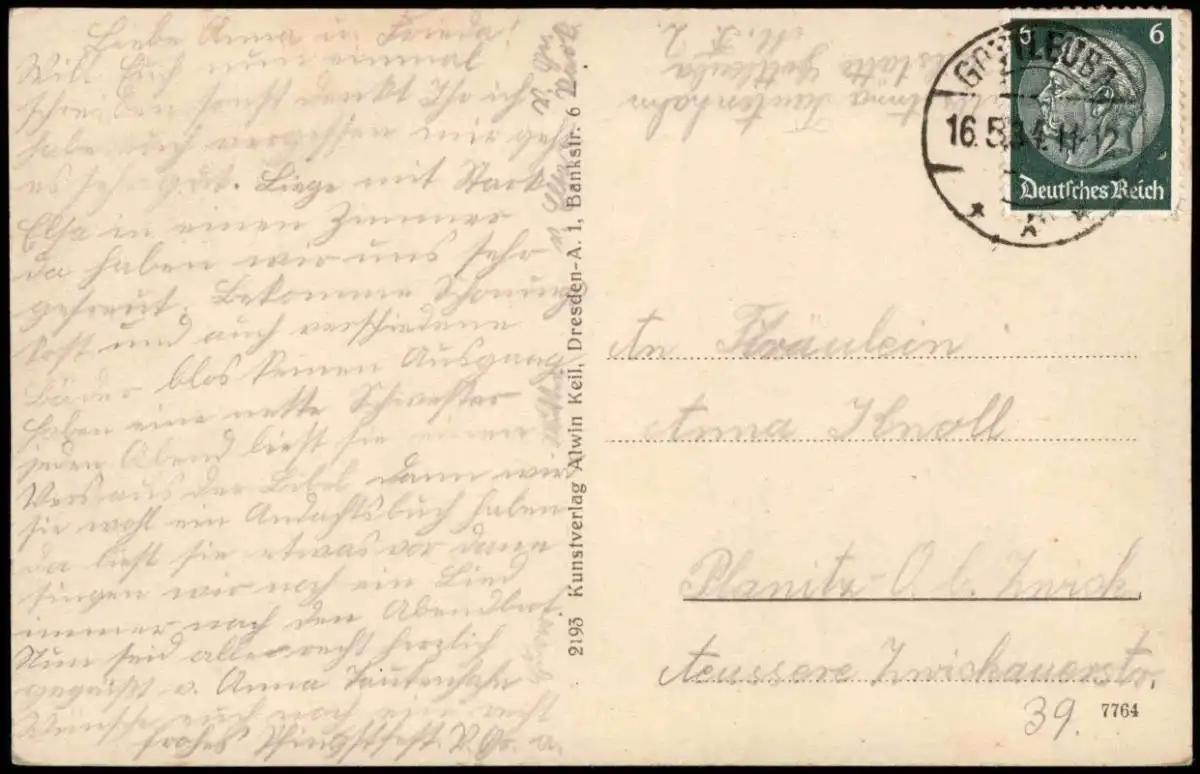 Liebe Anna u. Frieda!
Will Euch nun einmal
schreiben sonst denkt Ihr ich
habe Euch vergessen mir geht
es sehr gut. Liege mit Stark
Elsa in einen Zimmer
da haben wir uns sehr
gefreut. Bekomme Schonungs
kost und auch verschiedene
Bäder blos keinen Ausgang
haben eine nette Schwester
jeden Abend liest sie einen
Vers aus der Bibel dann wird
sie wohl ein Andachtsbuch haben
da liest sie etwas vor dann
singen wir noch ein Lied
immer nach den Abendbrot
Nun seid alle recht herzlich
gegrüßt v. Anna Tautenhahn
Wünsche euch noch ein recht
frohes Pfingstfest
2193 Kunstverlag Alwin Keil, Dresden-A. 1, Bankstr. 6
Anna Tautenhahn
Gottleuba
GOTTLEUBA
16.5.34.11-12
6 6
Deutsches Reich
An Fräulein
Anna Knoll
Planitz-O. b. Zwick.
Aeussere Zwickauerstr.
39.
7764